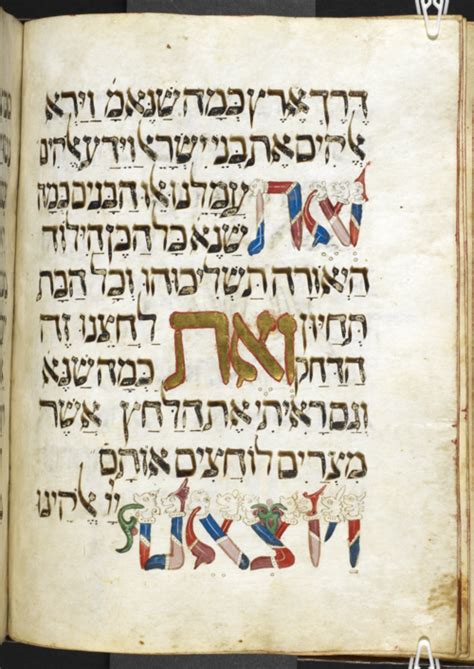 דרך ארץ כמה שנאמ וירא
אלקים את בני ישראל וידע אלקים
ואת עמלנו אלו הבנים כמו
שנא כל הבן הילוד
היאורה תשליכוהו וכל הבת
תחיון ואת לחצנו זה
הדחק כמה שנא
וגם ראיתי את הלחץ אשר
מצרים לוחצים אותם
ויוצאנו יי אלקינו